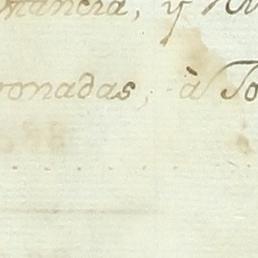 mancia, y
ronadas, à To